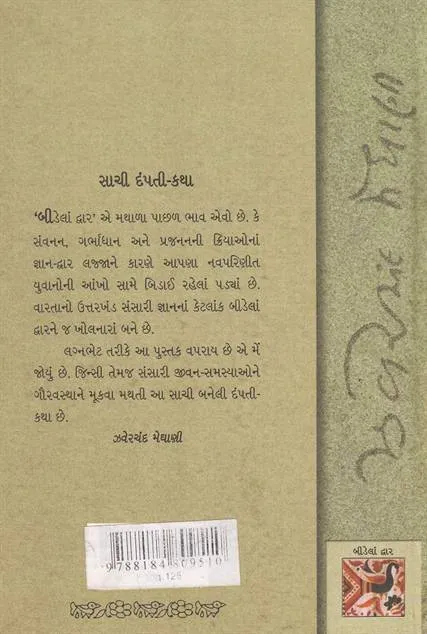 સાચી દંપતી-કથા
'બીડેલાં દ્વાર' એ મથાળા પાછળ ભાવ એવો છે. કે
સંવનન, ગર્ભાધાન અને પ્રજનનની ક્રિયાઓનાં
જ્ઞાન-દ્વાર લજ્જાને કારણે આપણા નવપરિણીત
યુવાનોની આંખો સામે બિડાઈ રહેલાં પડ્યાં છે.
વારતાનો ઉત્તરખંડ સંસારી જ્ઞાનનાં કેટલાંક બીડેલાં
દ્વારને જ ખોલનારાં બને છે.
લગ્નભેટ તરીકે આ પુસ્તક વપરાય છે એ મેં
જોયું છે. જિન્સી તેમજ સંસારી જીવન-સમસ્યાઓને
ગૌરવસ્થાને મૂકવા મથતી આ સાચી બનેલી દંપતી-
કથા છે.
ઝવેરચંદ મેઘાણી
9 788184 809510
ઝવેરચંદ મેઘાણી
બીડેલાં દ્વાર